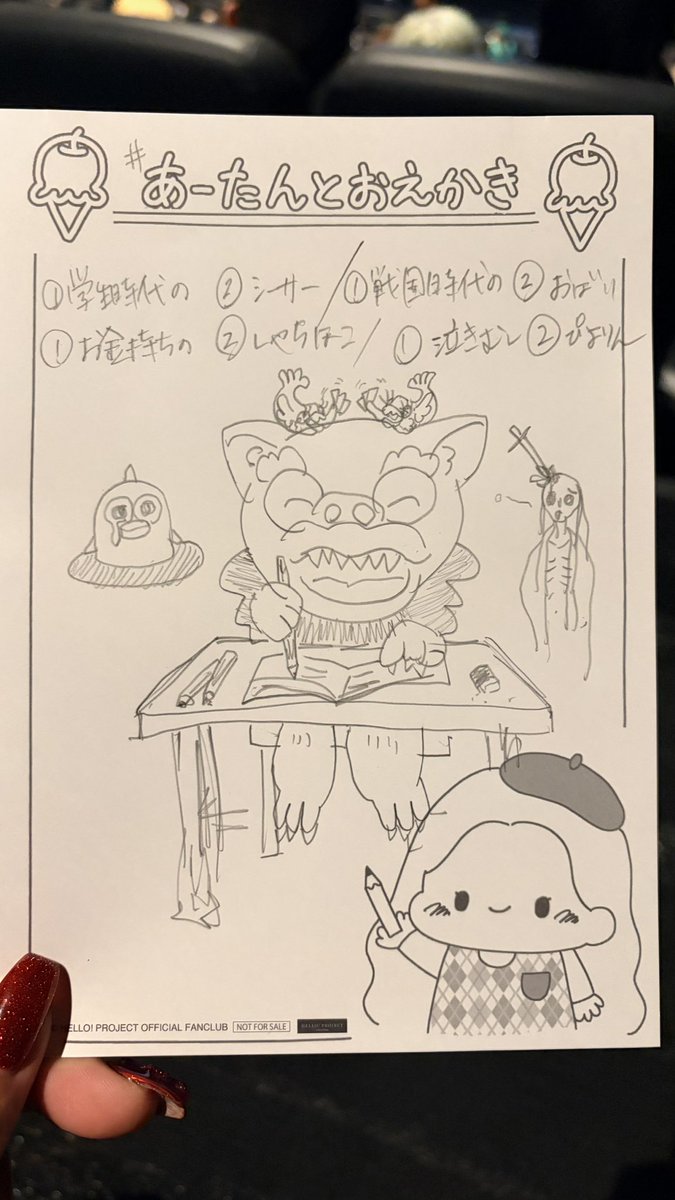 #あーたんとおえかき
①学生時代の ②シーサー/①戦国時代の ②おばけ
①お金持ちの ②しゃちほこ/ ①泣きむし ②ぴよりん
© HELLO! PROJECT OFFICIAL FANCLUB NOT FOR SALE HELLO! PROJECT